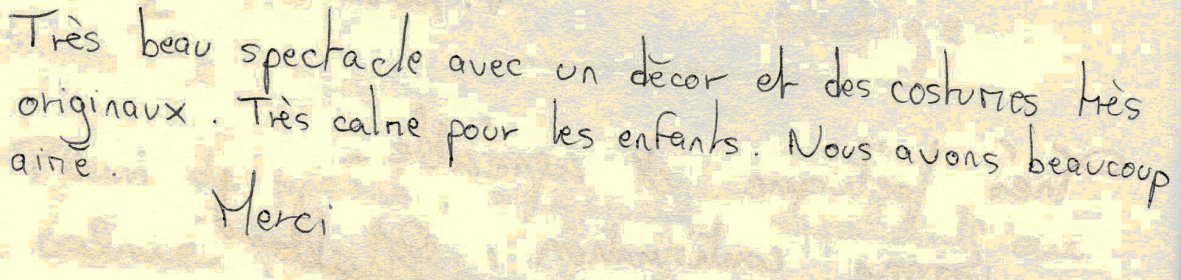 Très beau spectacle avec un décor et des costumes très
originaux. Très calme pour les enfants. Nous avons beaucoup
aimé.
Merci